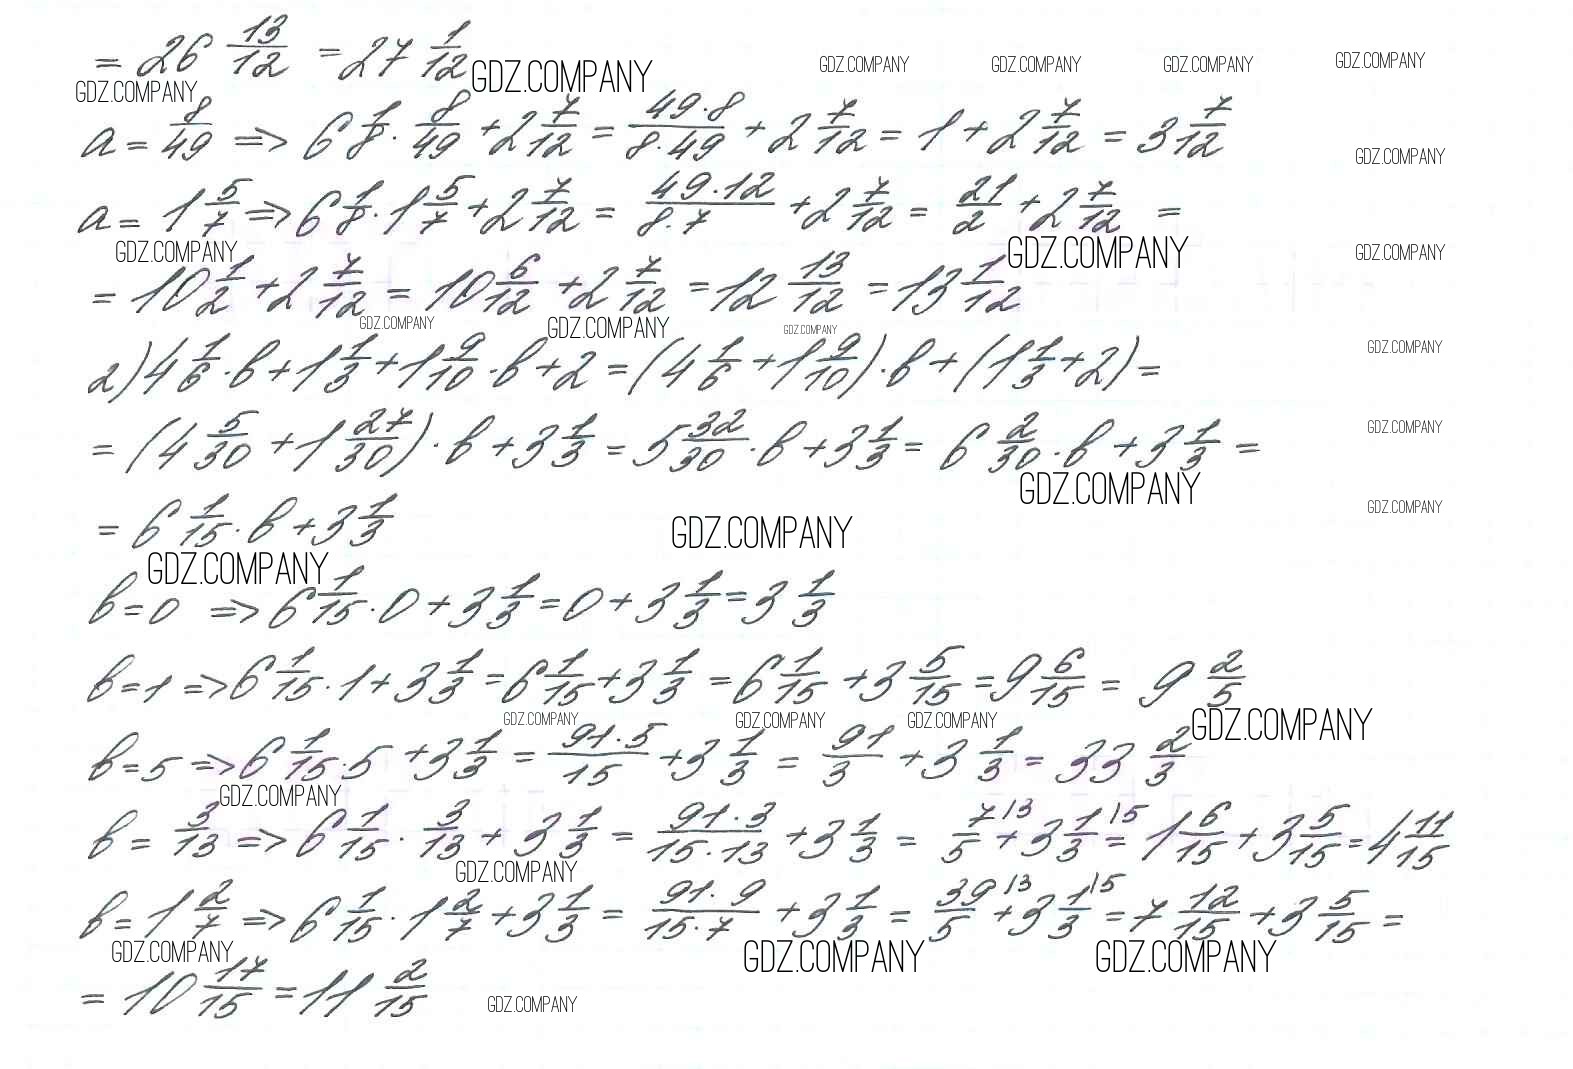 = 26 13/12 = 27 1/12 GDZ.COMPANY GDZ.COMPANY GDZ.COMPANY GDZ.COMPANY GDZ.COMPANY
GDZ.COMPANY
a = 8/49 => 6 1/8 · 8/49 + 2 7/12 = 49·8/8·49 + 2 7/12 = 1 + 2 7/12 = 3 7/12
GDZ.COMPANY
a = 1 5/7 => 6 1/8 · 1 5/7 + 2 7/12 = 49·12/8·7 + 2 7/12 = 21/2 + 2 7/12 =
GDZ.COMPANY GDZ.COMPANY GDZ.COMPANY
= 10 1/2 + 2 7/12 = 10 6/12 + 2 7/12 = 12 13/12 = 13 1/12
GDZ.COMPANY GDZ.COMPANY GDZ.COMPANY
GDZ.COMPANY
г) 4 1/6 · b + 1 1/3 + 1 9/10 · b + 2 = (4 1/6 + 1 9/10) · b + (1 1/3 + 2) =
GDZ.COMPANY
= (4 5/30 + 1 27/30) · b + 3 1/3 = 5 32/30 · b + 3 1/3 = 6 2/30 · b + 3 1/3 =
GDZ.COMPANY
GDZ.COMPANY
= 6 1/15 · b + 3 1/3
GDZ.COMPANY
GDZ.COMPANY
b = 0 => 6 1/15 · 0 + 3 1/3 = 0 + 3 1/3 = 3 1/3
b = 1 => 6 1/15 · 1 + 3 1/3 = 6 1/15 + 3 1/3 = 6 1/15 + 3 5/15 = 9 6/15 = 9 2/5
GDZ.COMPANY GDZ.COMPANY GDZ.COMPANY GDZ.COMPANY
b = 5 => 6 1/15 · 5 + 3 1/3 = 91·5/15 + 3 1/3 = 91/3 + 3 1/3 = 33 2/3
GDZ.COMPANY
b = 3/13 => 6 1/15 · 3/13 + 3 1/3 = 91·3/15·13 + 3 1/3 = 7/5 \3 + 3 1/3 \5 = 1 6/15 + 3 5/15 = 4 11/15
GDZ.COMPANY
b = 1 2/7 => 6 1/15 · 1 2/7 + 3 1/3 = 91·9/15·7 + 3 1/3 = 39/5 \3 + 3 1/3 \5 = 7 12/15 + 3 5/15 =
GDZ.COMPANY GDZ.COMPANY GDZ.COMPANY
= 10 17/15 = 11 2/15
GDZ.COMPANY